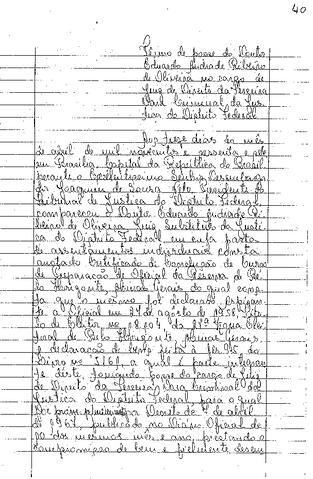 40
Termo de posse do Doutor
Eduardo Andrade Ribeiro
de Oliveira no cargo de
Juiz de Direito da Terceira
Vara Criminal da Jus
tiça do Distrito Federal
Aos treze dias do mês
de abril de mil novecentos e sessenta e sete
em Brasília, Capital da República do Brasil,
perante o Excelentíssimo Senhor Desembarga
dor Joaquim de Sousa Neto Presidente do
Tribunal de Justiça do Distrito Federal,
compareceu o Doutor Eduardo Andrade Ri
beiro de Oliveira, Juiz Substituto da Justi
ça do Distrito Federal em cuja pasta
de assentamentos individuais consta
Certificado de Conclusão do Curso
de Preparação de Oficial da Reserva de Be
lo Horizonte, Minas Gerais, do qual cons
ta que o mesmo foi declarado
te a Oficial em 27 de agosto de 1958,
de Eleitor nº
de Belo Horizonte, Minas Gerais,
e declaração de bens feita à fls.
Livro nº a qual é parte integran
te deste, tomando posse do cargo de Juiz
de Direito da Terceira Vara Criminal da
Justiça do Distrito Federal, para o qual
foi Decreto de 4 de abril
de 1967, publicado no Diário Oficial de
do mesmo mês e ano, prestando o
compromisso de bem e fielmente desem